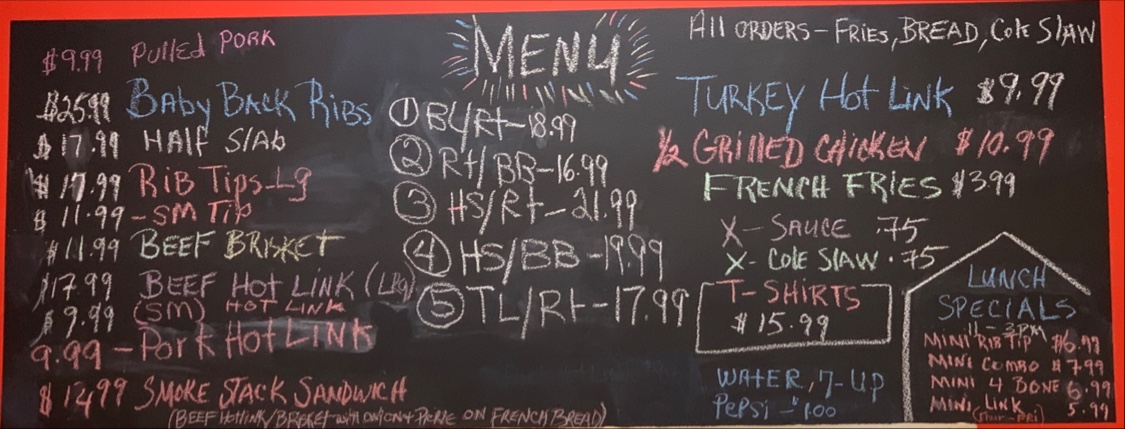 MENU
$9.99 Pulled PORK
$25.99 Baby Back Ribs
$17.99 HALF Slab
$17.99 Rib Tips-Lg
$11.99 - SM Tip
$11.99 BEEF BRISKET
$17.99 BEEF Hot Link (LRg)
$9.99 (SM) HOT LINK
9.99 - Pork Hot LINK
$12.99 SMOKE STACK SANDWICH
(BEEF Hotlink/BRISKET with ONION & Pickle ON FRENCH BREAD)
① B4/Rt-18.99
② Rt/BB-16.99
③ HS/Rt-21.99
④ HS/BB-19.99
⑤ TL/Rt-17.99
All ORDERS - FRIES, BREAD, Cole Slaw
TURKEY Hot Link $9.99
1/2 GRILLED CHICKEN $10.99
FRENCH FRIES $3.99
X- SAUCE .75
X- Cole Slaw .75
T-SHIRTS
$15.99
WATER, 7-UP
Pepsi - $1.00
LUNCH
SPECIALS
11-3PM
MINI RIB TIP $6.99
MINI COMBO $7.99
MINI 4 BONE 6.99
MINI LINK 5.99
(Thur-FRI)